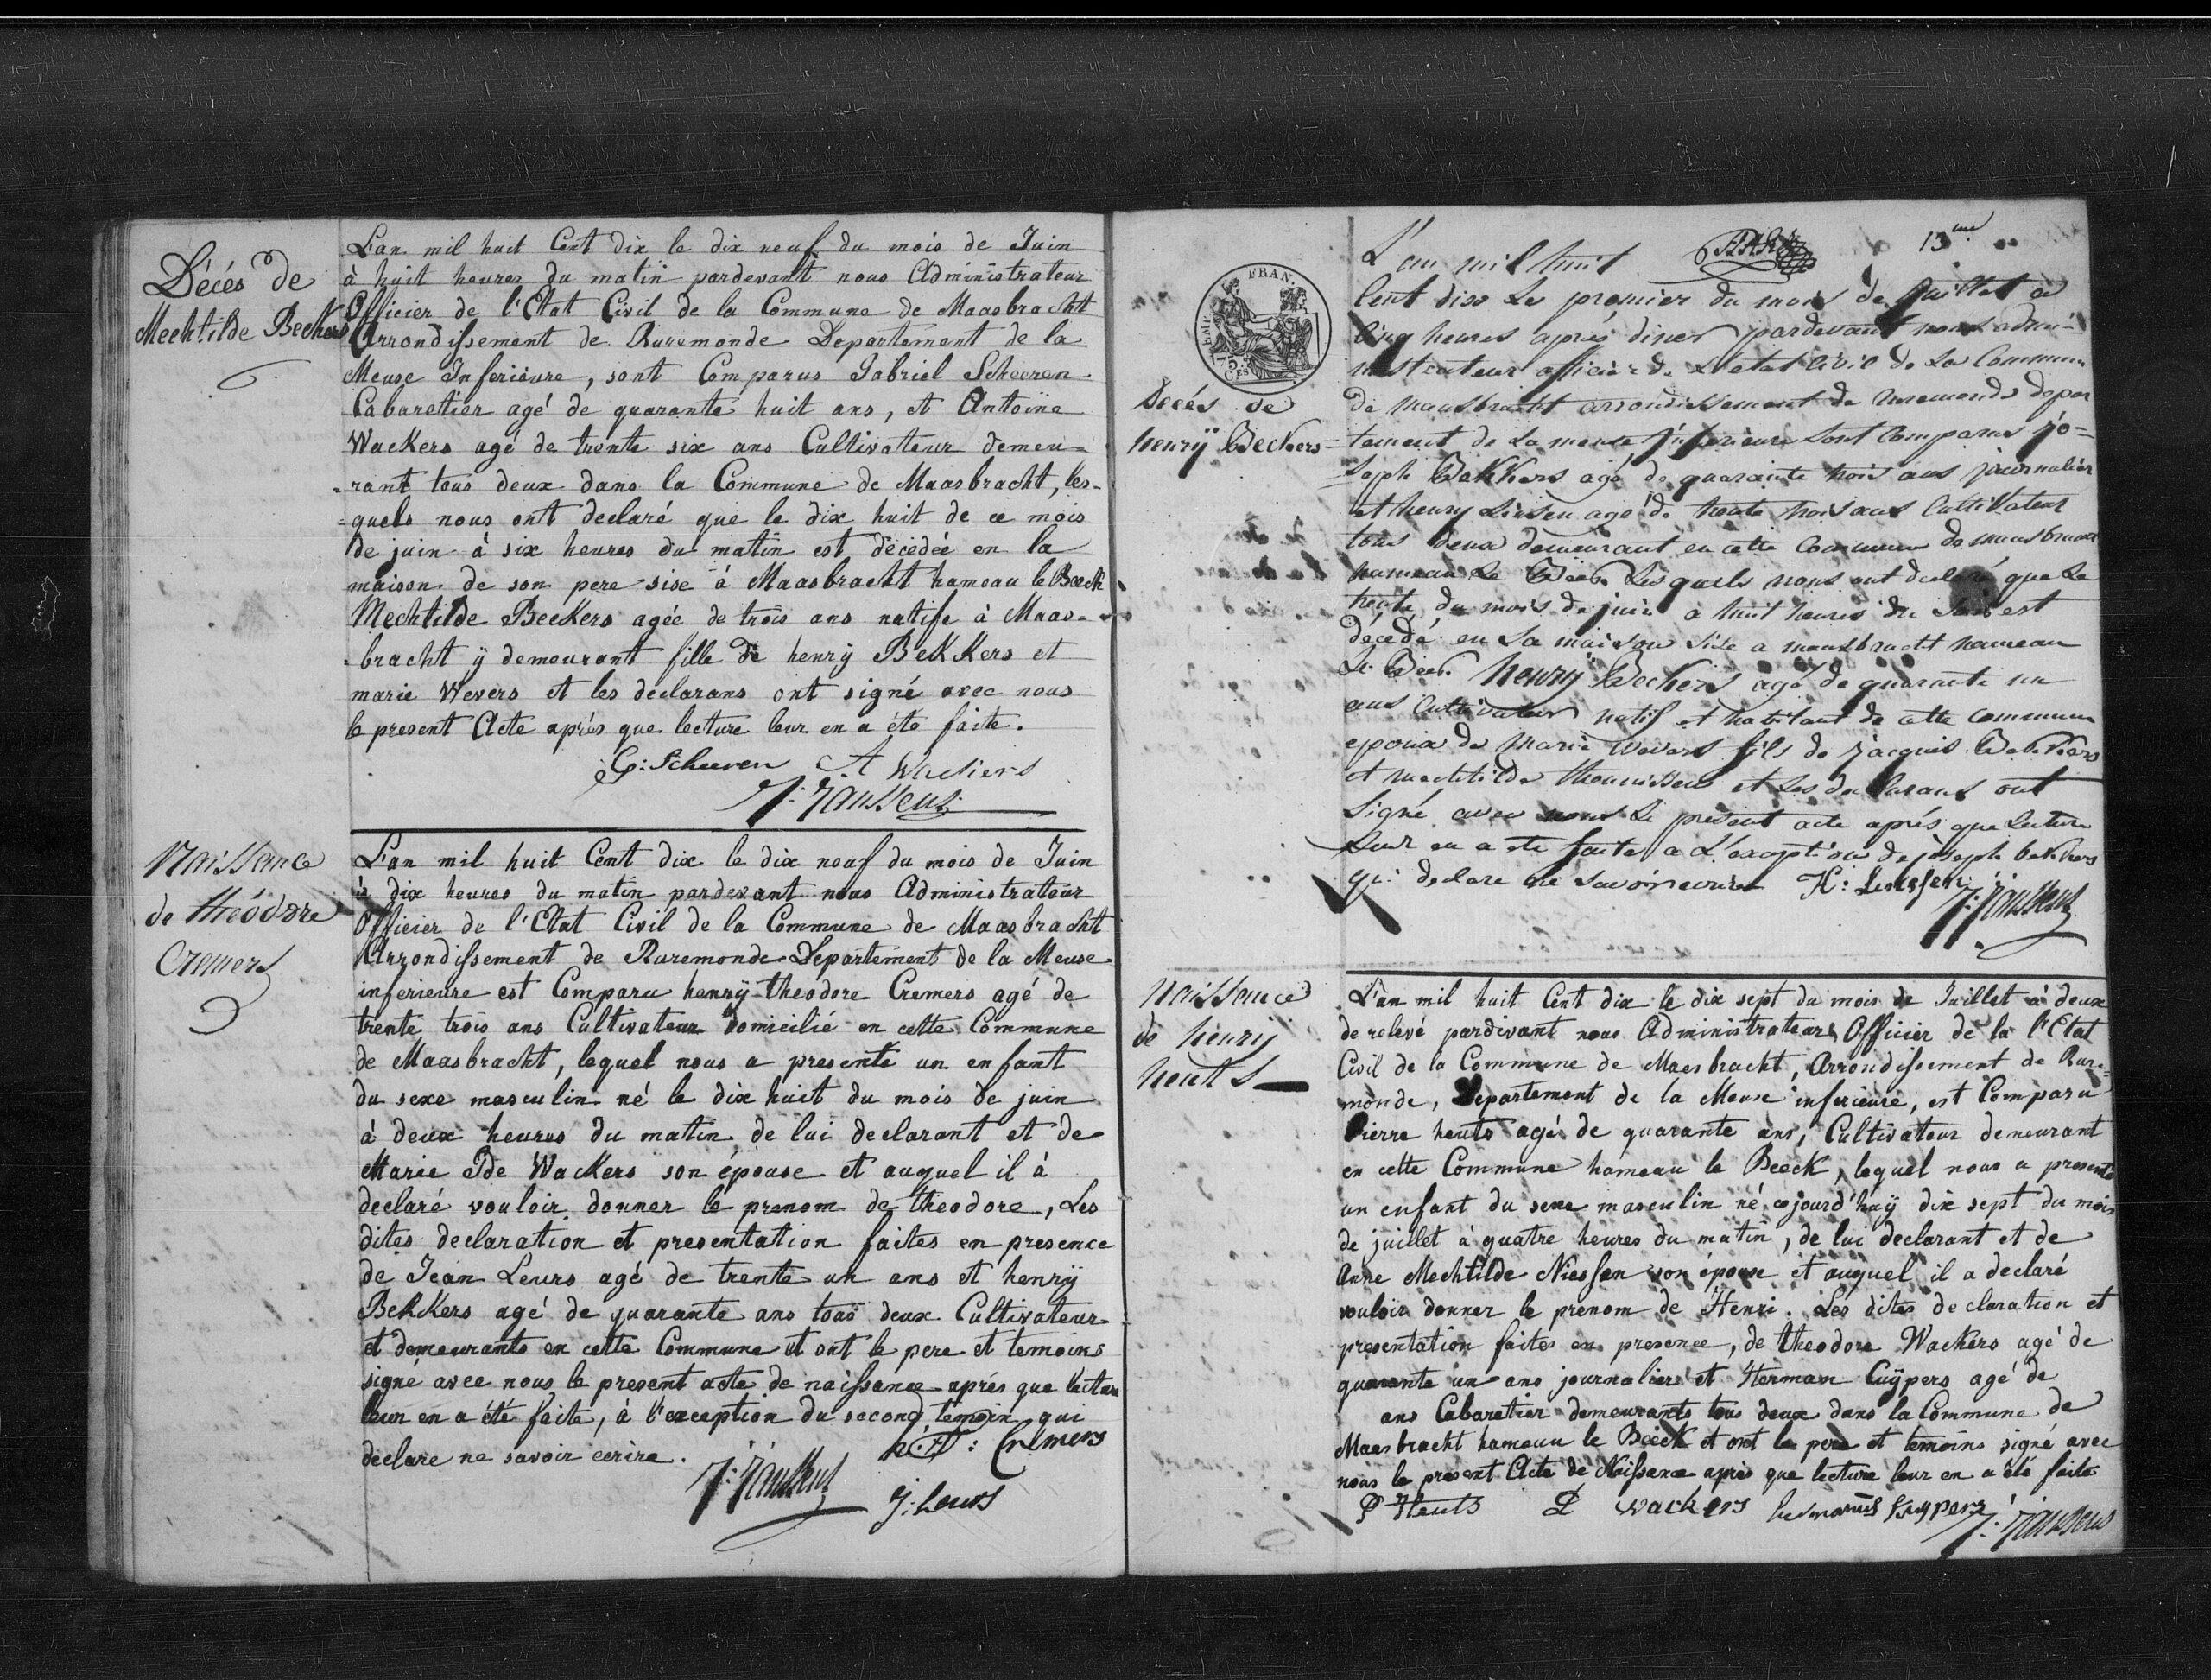 Décés de
Mechtilde Beckers
L'an mil huit Cent dix le dix neuf du mois de Juin
à huit heures du matin pardevant nous Administrateur
Officier de l'Etat Civil de la Commune de Maasbracht
Arrondissement de Ruremonde Departement de la
Meuse Inferieure, sont Comparus Gabriel Scheuren
Cabaretier agé de quarante huit ans, et Antoine
Wackers agé de trente six ans Cultivateur demeu=
=rant tous deux dans la Commune de Maasbracht, les=
=quels nous ont declaré que le dix huit de ce mois
de juin à six heures du matin est décédée en la
maison de son pere sise à Maasbracht hameau le Beeck
Mechtilde Beekers agée de trois ans natife à Maas=
=bracht ÿ demeurant fille de henrÿ Bekkers et
marie Wevers et les declarans ont signé avec nous
le present Acte aprés que lecture leur en a été faite.
G: Scheuren A Wackers
J: Janssens
Naissance
de théodore
Cremers
L'an mil huit Cent dix le dix neuf du mois de Juin
à dix heures du matin pardevant nous Administrateur
Officier de l'Etat Civil de la Commune de Maasbracht
Arrondissement de Ruremonde Departement de la Meuse
inferieure est Comparu henrÿ theodore Cremers agé de
trente trois ans Cultivateur domicilié en cette Commune
de Maasbracht, lequel nous a presenté un enfant
du sexe masculin né le dix huit du mois de juin
à deux heures du matin de lui declarant et de
Marie Ide Wackers son épouse et auquel il à
declaré vouloir donner le prenom de theodore, Les
dites declaration et presentation faites en presence
de Jean Leurs agé de trente un ans et henrÿ
Bekkers agé de quarante ans tous deux Cultivateur
et demeurants en cette Commune et ont le pere et temoins
signé avec nous le present acte de naissance aprés que lecture
leur en a été faite, à l'exception du second temoin qui
declare ne savoir ecrire.
h: T: Cremers
J: Janssens
J: Leurs
13me
EMP. FRAN.
75
Ces
Décés de
henrÿ Beckers
L'an mil huit
Cent dix Le premier du mois de Juillet a
Cinq heures aprés diner pardevant nous admi=
nistrateur officier de L'etat Civil de La Commune
de maasbracht arrondissement de ruremonde depar
tement de La meuse inferieure Sont Comparus jo=
seph Bekkers agé de quarante trois ans journalier
et henry Linsen agé de trente trois ans Cultivateur
tous deux demeurant en cette Commune de maasbracht
hameau Le Beek Lesquels nous ont declaré que Le
trente du mois de juin a huit heures du soir est
décédé en Sa maison Sise a maasbracht hameau
Le Beek henry Beckers agé de quarante un
ans Cultivateur natif et habitant de cette commune
epoux de Marie wevers fils de jacques Bekkers
et mechtilde theunissen et Les declarans ont
Signé avec nous Le present acte aprés que Lecture
Leur en a ete faite a L'exception de joseph bekkers
qui declare ne savoir ecrire H: Linssen
J: Janssens
Naissance
de henrij
heuts
L'an mil huit Cent dix le dix sept du mois de Juillet à deux
de relevé pardevant nous Administrateur Officier de la l'Etat
Civil de la Commune de Maesbracht, Arrondissement de Rure=
monde, Departement de la Meuse inferieure, est Comparu
Pierre heuts agé de quarante ans, Cultivateur demeurant
en cette Commune hameau le Beeck, lequel nous a presenté
un enfant du sexe masculin né cejourd'huÿ dix sept du mois
de juillet à quatre heures du matin, de lui declarant et de
Anne Mechtilde Niessen son épouse et auquel il a declaré
vouloir donner le prenom de Henri. Les dites declaration et
presentation faites en presence, de theodore Wackers agé de
quarante un ans journalier et Herman Cuÿpers agé de
ans Cabaretier demeurants tous deux dans la Commune de
Maesbracht hameau le Beéck et ont le pere et temoins signé avec
nous le present Acte de Naissance aprés que lecture leur en a été faite
P Heuts wackers hermanus kuypers
J: Janssens